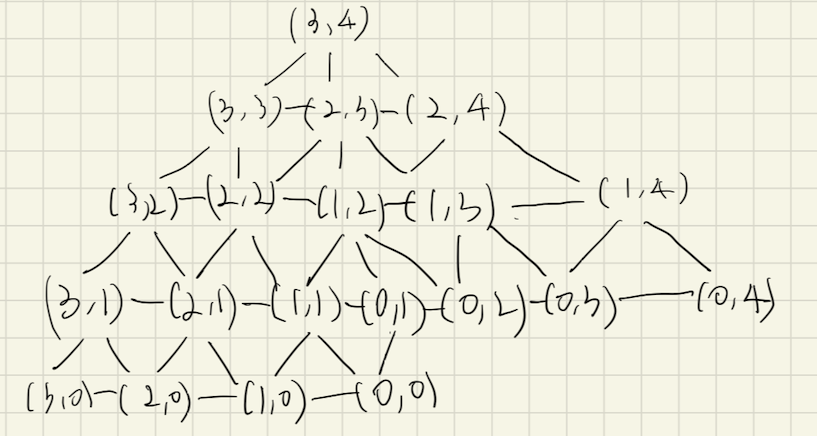 (3,4)
(3,3)-(2,3)-(2,4)
(3,2)-(2,2)-(1,2)-(1,3)-(1,4)
(3,1)-(2,1)-(1,1)-(0,1)-(0,2)-(0,3)-(0,4)
(3,0)-(2,0)-(1,0)-(0,0)